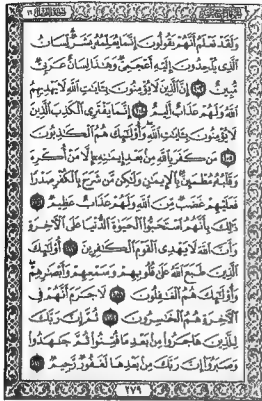 وَلَقَدْ نَعْلَمُ أَنَّهُمْ يَقُولُونَ إِنَّمَا يُعَلِّمُهُ بَشَرٌ لِّسَانُ
الَّذِي يُلْحِدُونَ إِلَيْهِ أَعْجَمِيٌّ وَهَٰذَا لِسَانٌ عَرَبِيٌّ
مُّبِينٌ ﴿١٠٣﴾ إِنَّ الَّذِينَ لَا يُؤْمِنُونَ بِآيَاتِ اللَّهِ لَا يَهْدِيهِمُ
اللَّهُ وَلَهُمْ عَذَابٌ أَلِيمٌ ﴿١٠٤﴾ إِنَّمَا يَفْتَرِي الْكَذِبَ الَّذِينَ
لَا يُؤْمِنُونَ بِآيَاتِ اللَّهِ وَأُولَٰئِكَ هُمُ الْكَاذِبُونَ
﴿١٠٥﴾ مَن كَفَرَ بِاللَّهِ مِن بَعْدِ إِيمَانِهِ إِلَّا مَنْ أُكْرِهَ
وَقَلْبُهُ مُطْمَئِنٌّ بِالْإِيمَانِ وَلَٰكِن مَّن شَرَحَ بِالْكُفْرِ صَدْرًا
فَعَلَيْهِمْ غَضَبٌ مِّنَ اللَّهِ وَلَهُمْ عَذَابٌ عَظِيمٌ ﴿١٠٦﴾
ذَٰلِكَ بِأَنَّهُمُ اسْتَحَبُّوا الْحَيَاةَ الدُّنْيَا عَلَى الْآخِرَةِ
وَأَنَّ اللَّهَ لَا يَهْدِي الْقَوْمَ الْكَافِرِينَ ﴿١٠٧﴾ أُولَٰئِكَ
الَّذِينَ طَبَعَ اللَّهُ عَلَىٰ قُلُوبِهِمْ وَسَمْعِهِمْ وَأَبْصَارِهِمْ
وَأُولَٰئِكَ هُمُ الْغَافِلُونَ ﴿١٠٨﴾ لَا جَرَمَ أَنَّهُمْ فِي
الْآخِرَةِ هُمُ الْخَاسِرُونَ ﴿١٠٩﴾ ثُمَّ إِنَّ رَبَّكَ
لِلَّذِينَ هَاجَرُوا مِن بَعْدِ مَا فُتِنُوا ثُمَّ جَاهَدُوا
وَصَبَرُوا إِنَّ رَبَّكَ مِن بَعْدِهَا لَغَفُورٌ رَّحِيمٌ ﴿١١٠﴾
٢٧٩